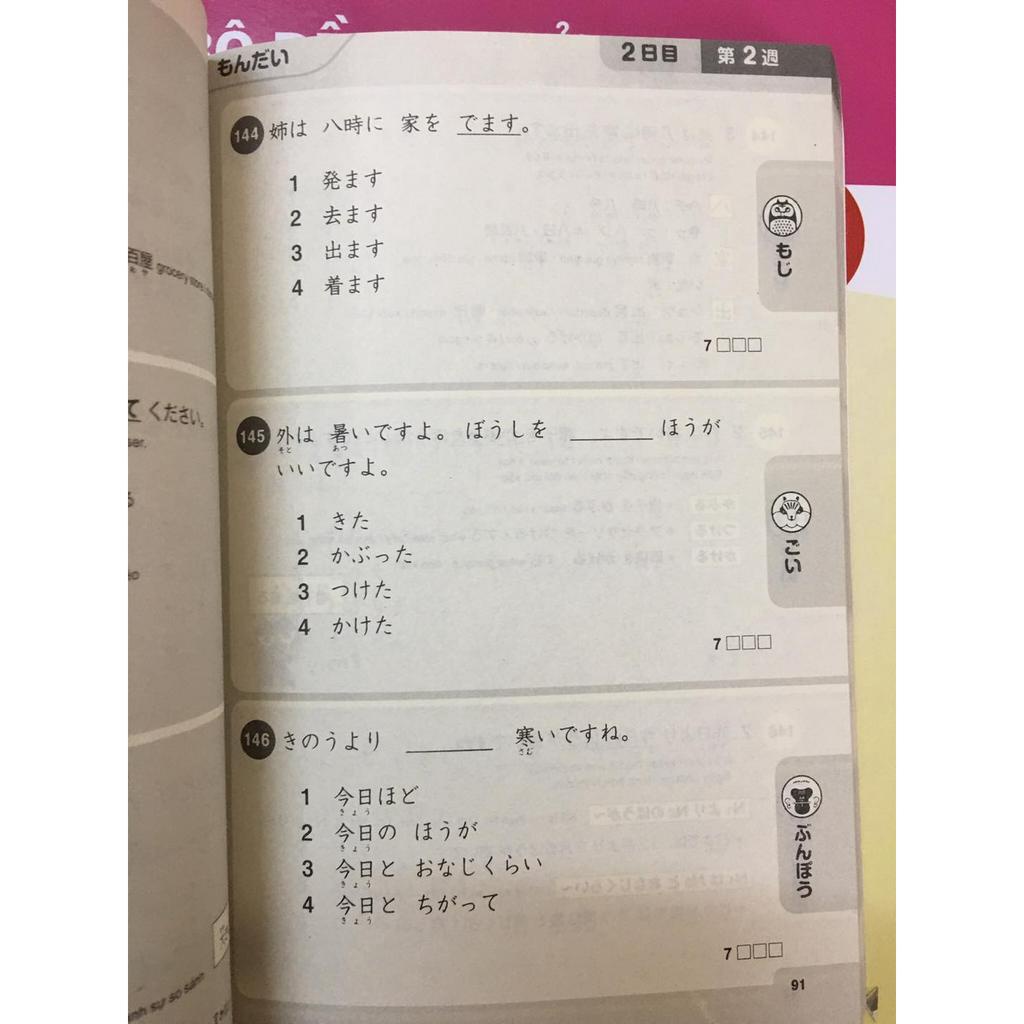 もんだい
2日目 第2週
144 姉は 八時に 家を でます。
1 発ます
2 去ます
3 出ます
4 着ます
もじ
7□□□
145 外は 暑いですよ。 ぼうしを ______ ほうが
そと あつ
いいですよ。
1 きた
2 かぶった
3 つけた
4 かけた
ごい
7□□□
146 きのうより ______ 寒いですね。
さむ
1 今日ほど
きょう
2 今日の ほうが
きょう
3 今日と おなじくらい
きょう
4 今日と ちがって
きょう
ぶんぽう
7□□□
91
百屋 grocery store
ください。